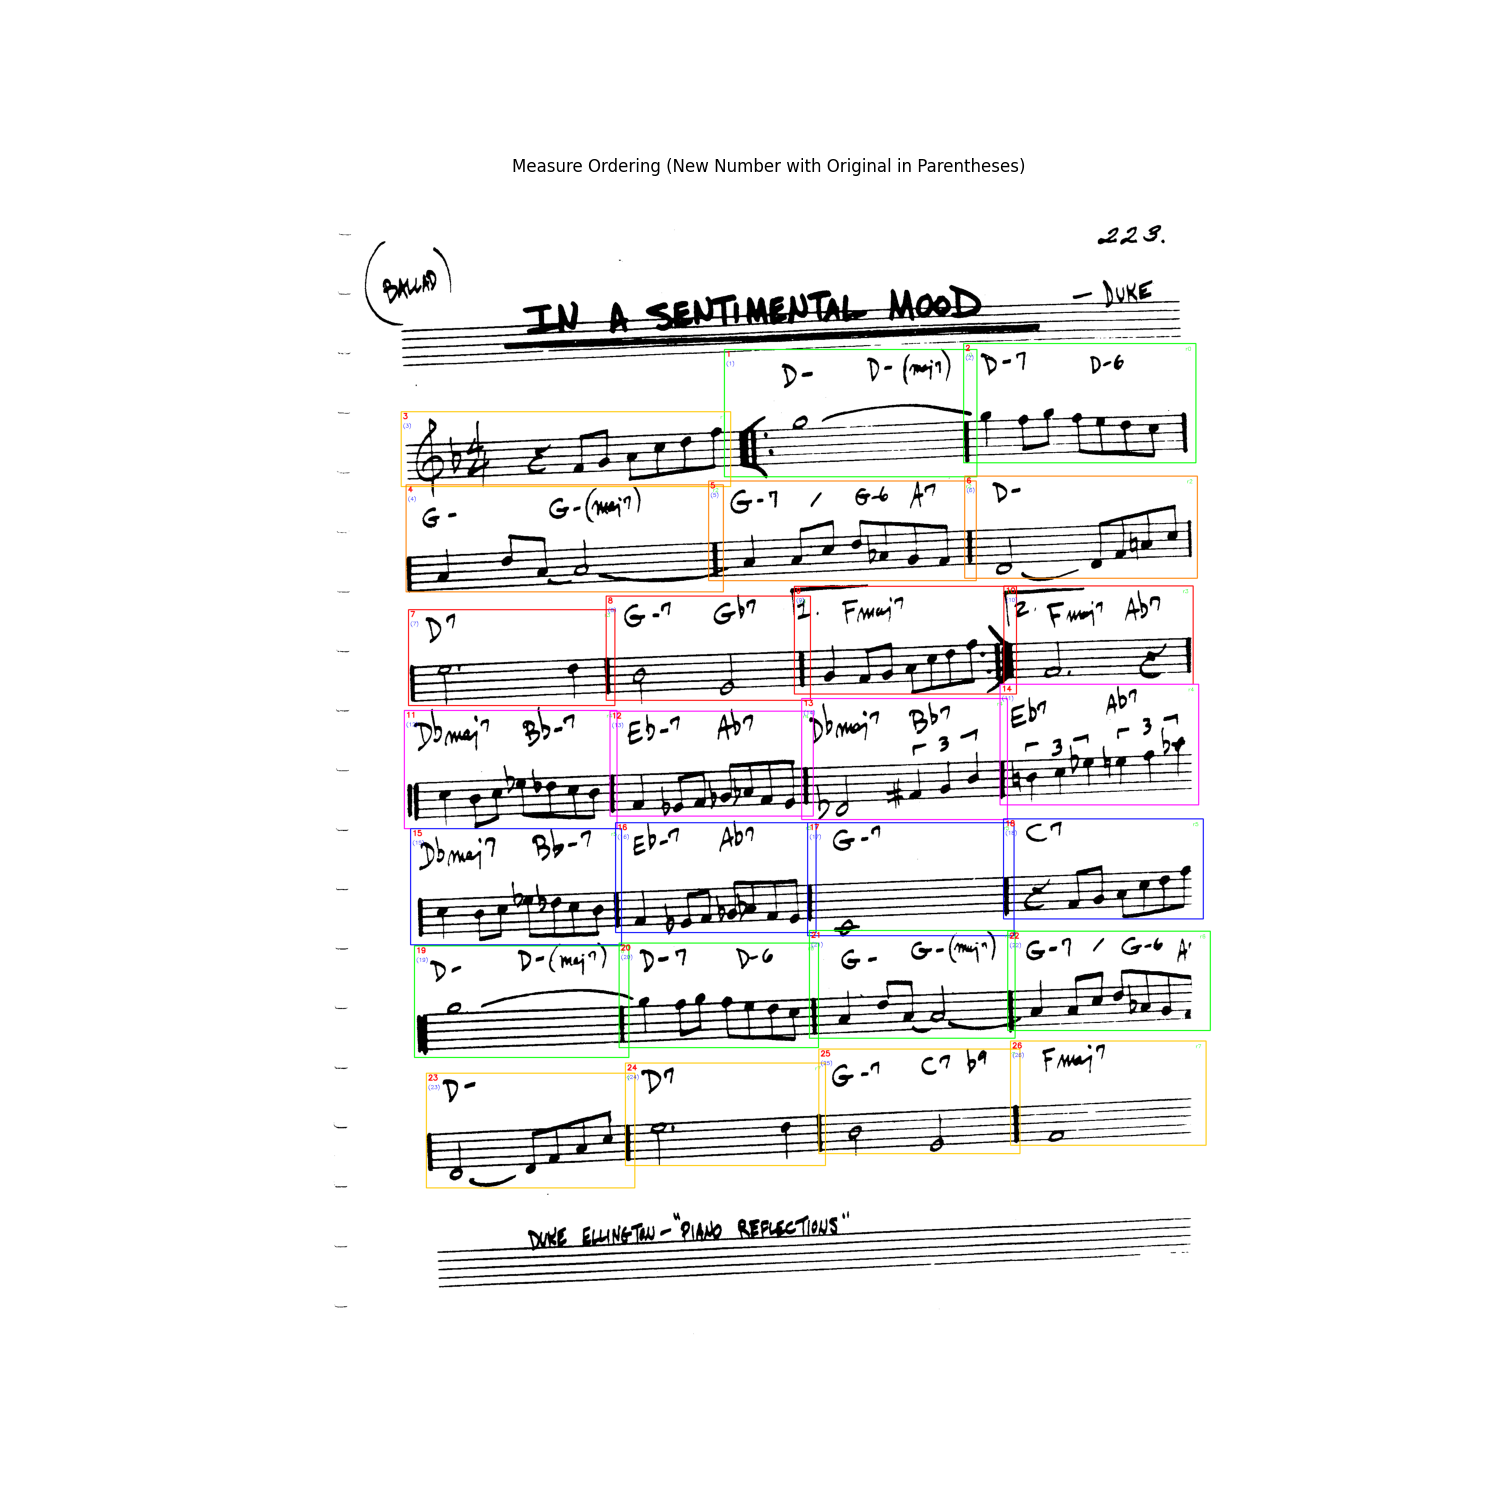 Measure Ordering (New Number with Original in Parentheses)
223.
(BALLAD)
IN A SENTIMENTAL MOOD
— DUKE
1 (1) D- D-(maj7) 2 (2) D-7 D-6
3 (3)
4 (4) G- G-(maj7) 5 (5) G-7 / G-6 A7 6 (6) D-
7 (7) D7 8 G-7 Gb7 1. Fmaj7 10 2. Fmaj7 Ab7
11 Dbmaj7 Bb-7 12 (13) Eb-7 Ab7 13 Dbmaj7 Bb7 14 Eb7 Ab7
3 3 3
15 Dbmaj7 Bb-7 16 Eb-7 Ab7 17 (17) G-7 18 C7
19 (19) D- D-(maj7) 20 (20) D-7 D-6 21 (21) G- G-(maj7) 22 (22) G-7 / G-6 A
23 (23) D- 24 (24) D7 25 (25) G-7 C7 b9 26 (26) Fmaj7
DUKE ELLINGTON - "PIANO REFLECTIONS"